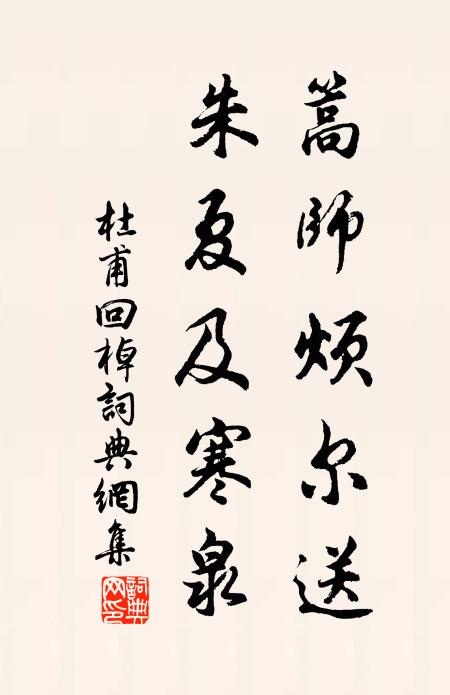 篙師煩尔送
朱夏及寒泉
杜甫回棹詞典網集
詞典
网印